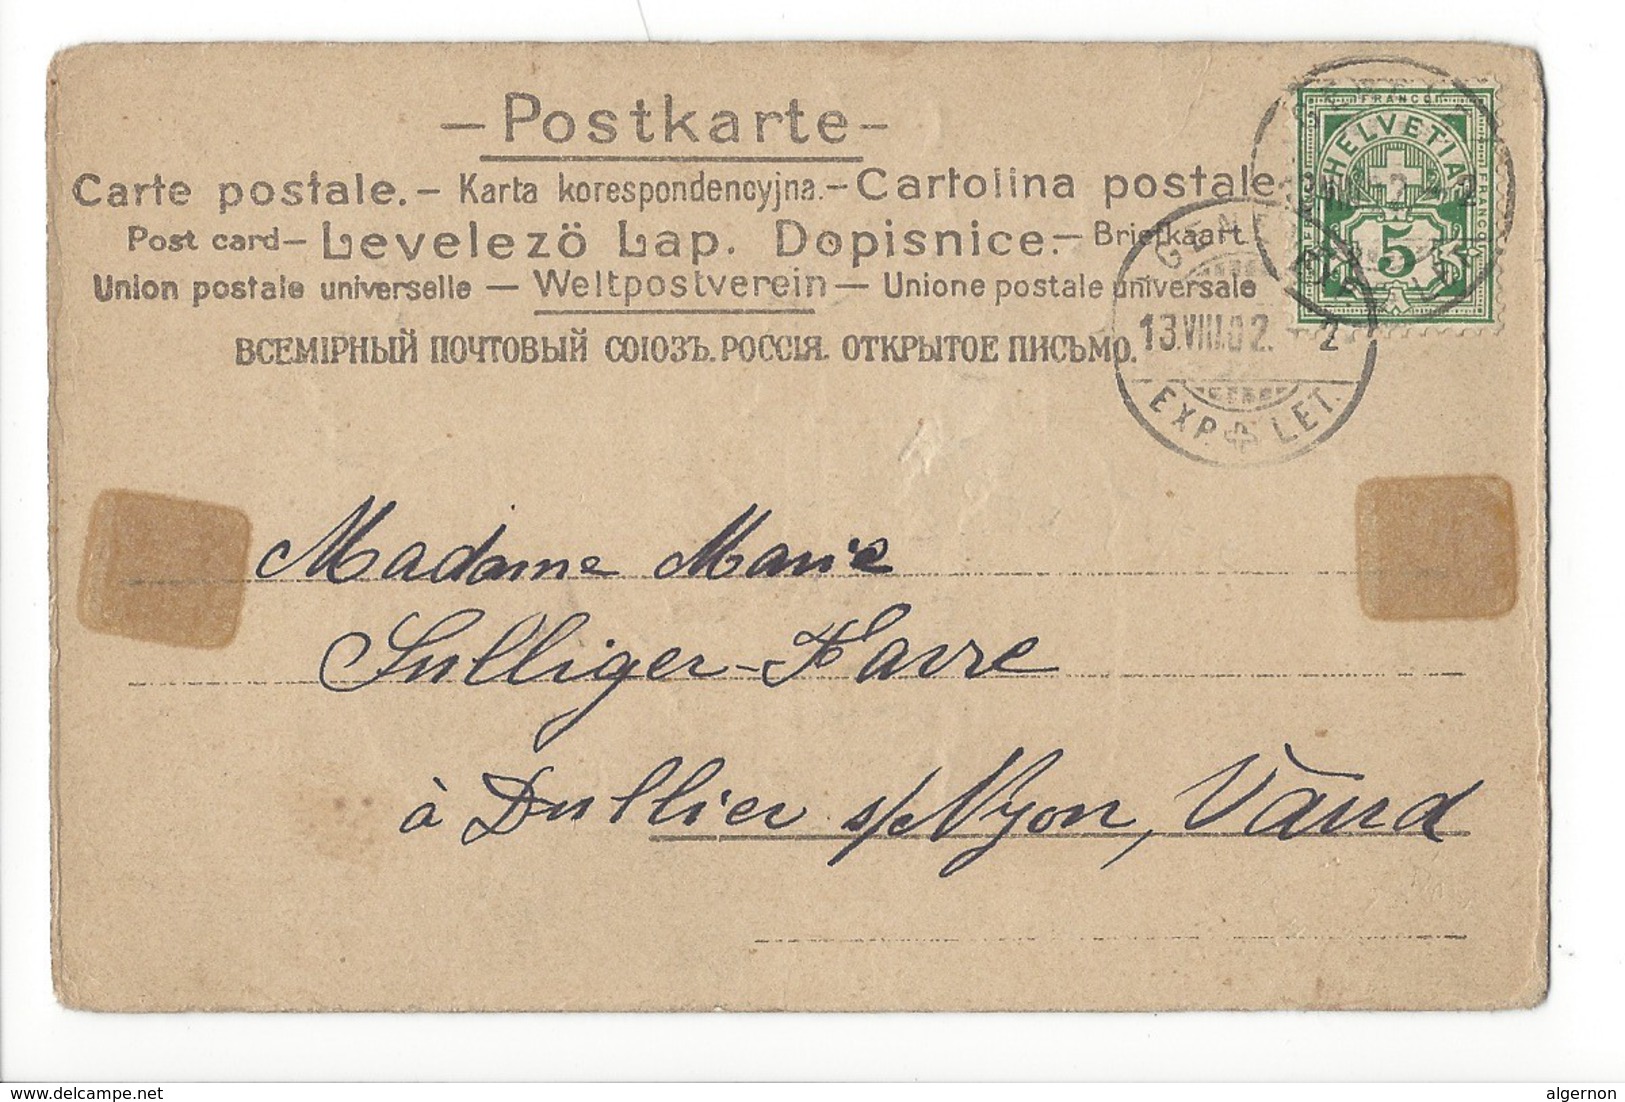 — Postkarte —
Carte postale. — Karta korespondencyjna. — Cartolina postale
Post card — Levelező Lap. Dopisnice. — Briefkaart.
Union postale universelle — Weltpostverein — Unione postale universale
ВСЕМІРНЫЙ ПОЧТОВЫЙ СОЮЗЪ. РОССІЯ. ОТКРЫТОЕ ПИСЬМО.
FRANCO
HELVETIA
FRANCO
FRANCO
5
13.VIII.02. 2
EXP. LET.
Madame Marie
Sulliger-Favre
à Dullier s/Nyon, Vaud
delcampe.net
algernon